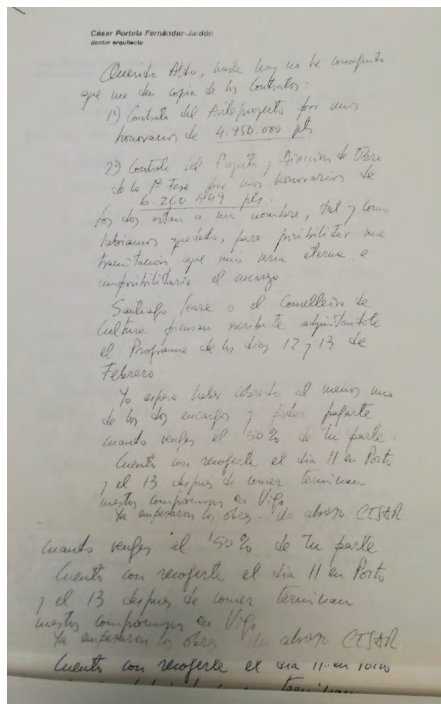 César Portela Fernández-Jardón
doctor arquitecto
Querido Aldo, hasta hoy no he conseguido
que me den copia de los Contratos:
1º) Contrato del Anteproyecto por unos
honorarios de 4.950.000 pts
2º) Contrato del Proyecto y Dirección de Obra
de la 1ª Fase por unos honorarios de
6.260.449 pts.
Los dos están a mi nombre, tal y como
habíamos quedado, para posibilitar una
tramitación que sino sería eterna e
imposibilitaría el encargo.
Santiago, o el Conselleiro de
Cultura piensan escribirte adjuntandote
el Programa de los días 12 y 13 de
Febrero.
Yo espero haber cobrado al menos uno
de los dos encargos y poder pagarte
cuando vengas el 50% de tu parte.
Cuenta con recogerte el día 11 en Porto
y el 13 después de comer terminan
nuestros compromisos en Vigo.
Ya empezaron las obras. Un abrazo CESAR
cuando vengas el 50% de tu parte
Cuenta con recogerte el día 11 en Porto
y el 13 después de comer terminan
nuestros compromisos en Vigo.
Ya empezaron las obras. Un abrazo CESAR
Cuenta con recogerte el día 11 en
terminan